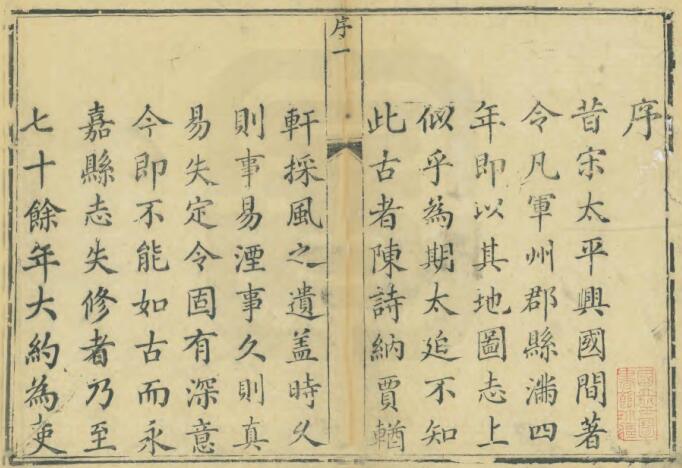 序
昔宋太平興國間著
令凡軍州郡縣滿四
年即以其地圖志上
似乎為期太近不知
此古者陳詩納賈輶
序一
軒採風之遺盖時久
則事易湮事久則真
易失定令固有深意
今即不能如古而永
嘉縣志失修者乃至
七十餘年大約為吏